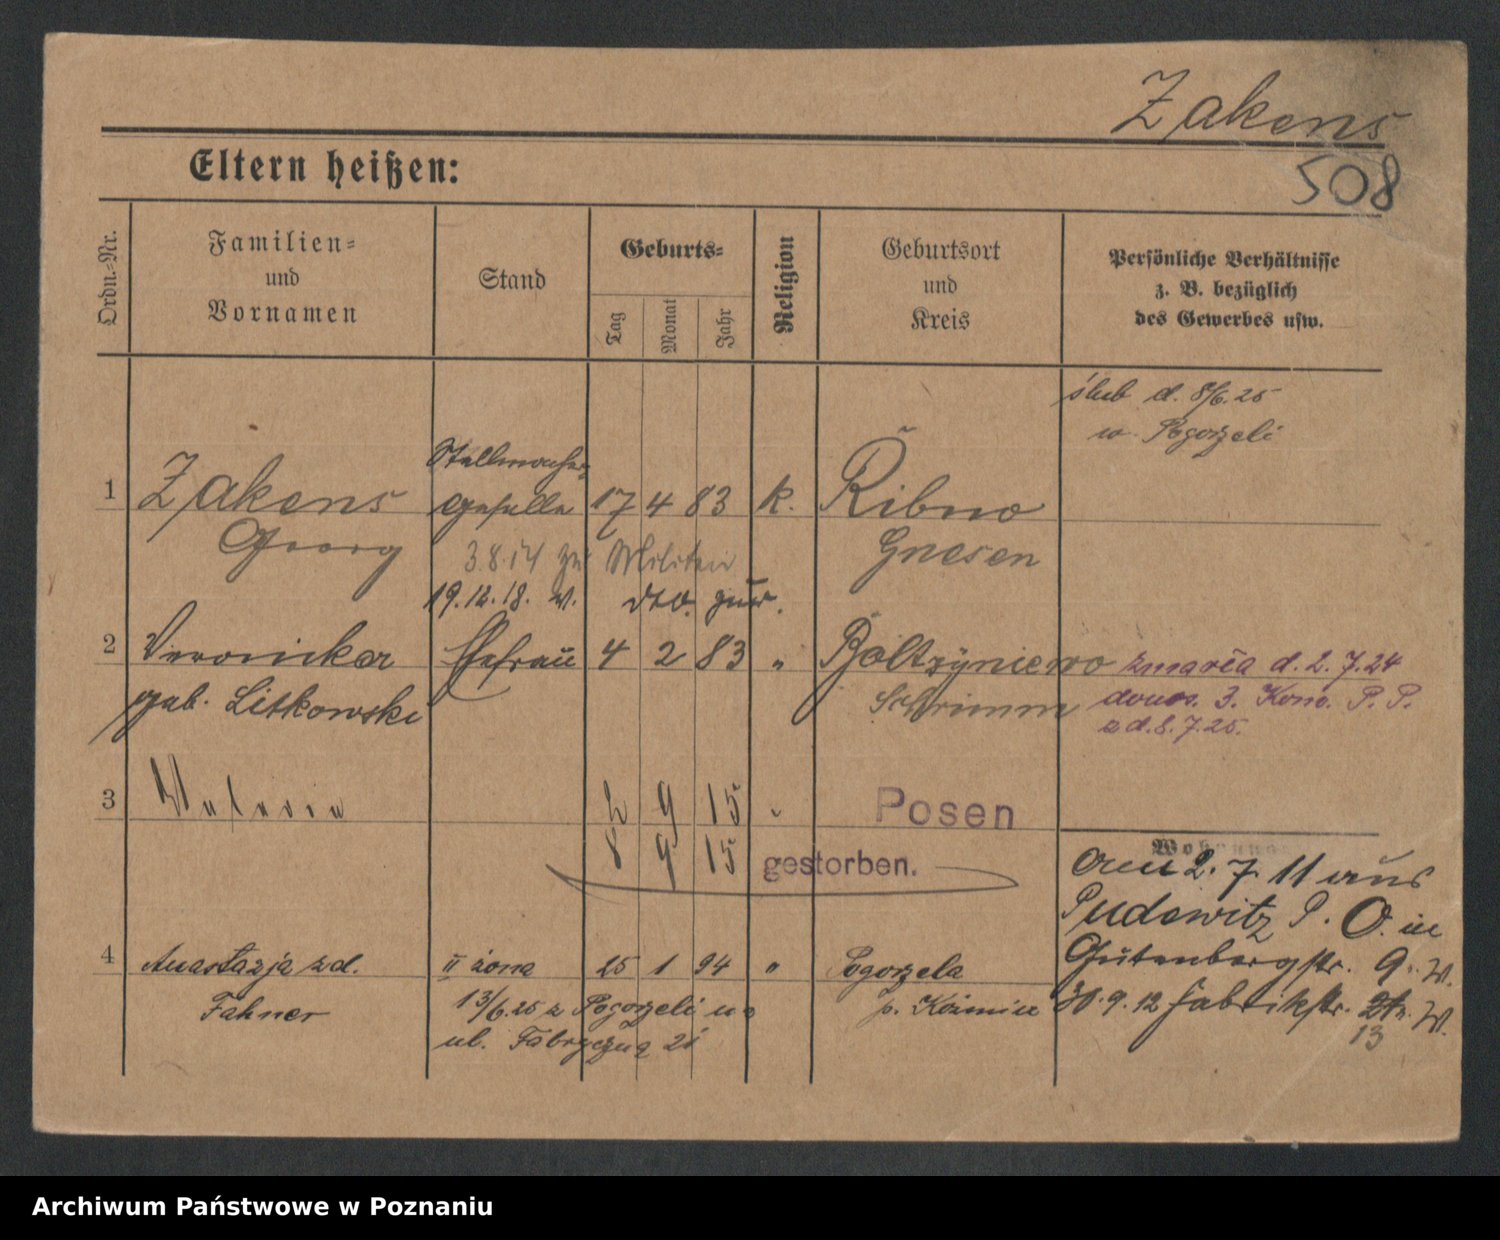 Zakens
508
Eltern heißen:
Ordn.-Nr.
Familien-
und
Vornamen
Stand
Geburts-
Tag
Monat
Jahr
Religion
Geburtsort
und
Kreis
Persönliche Verhältnisse
z. B. bezüglich
des Gewerbes usw.
ślub d. 8/6.25
w Pogorzeli
Stellmacher-
1 Zakens geselle 17 4 83 k. Ribno
Georg Gnesen
3.8.14 zu Militär
19.12.18. v. dto. zur.
2 Veronicka Ehefrau 4 2 83 " zmarła d. 2. 7. 24
geb. Litkowski Schrimm donos. 3. Kom. P. P.
z d. 8. 7. 25.
3 9 15 " Posen
8 9 15 gestorben.
Wohnung
2. 7. 11 aus
Pudewitz P. O. in
Gutenbergstr. 9. W.
4 Anastazja z d. II żona 25 1 94 " Pogorzela
Fahner 13/6.25 z Pogorzeli na p. Koźmin
30.9.12 Fabrikstr. W.
13
ul. Fabryczną 21
Archiwum Państwowe w Poznaniu